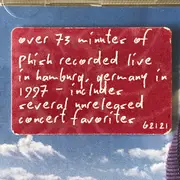 over 73 minutes of
phish recorded live
in hamburg, germany in
1997 - includes
several unreleased
concert favorites
62121